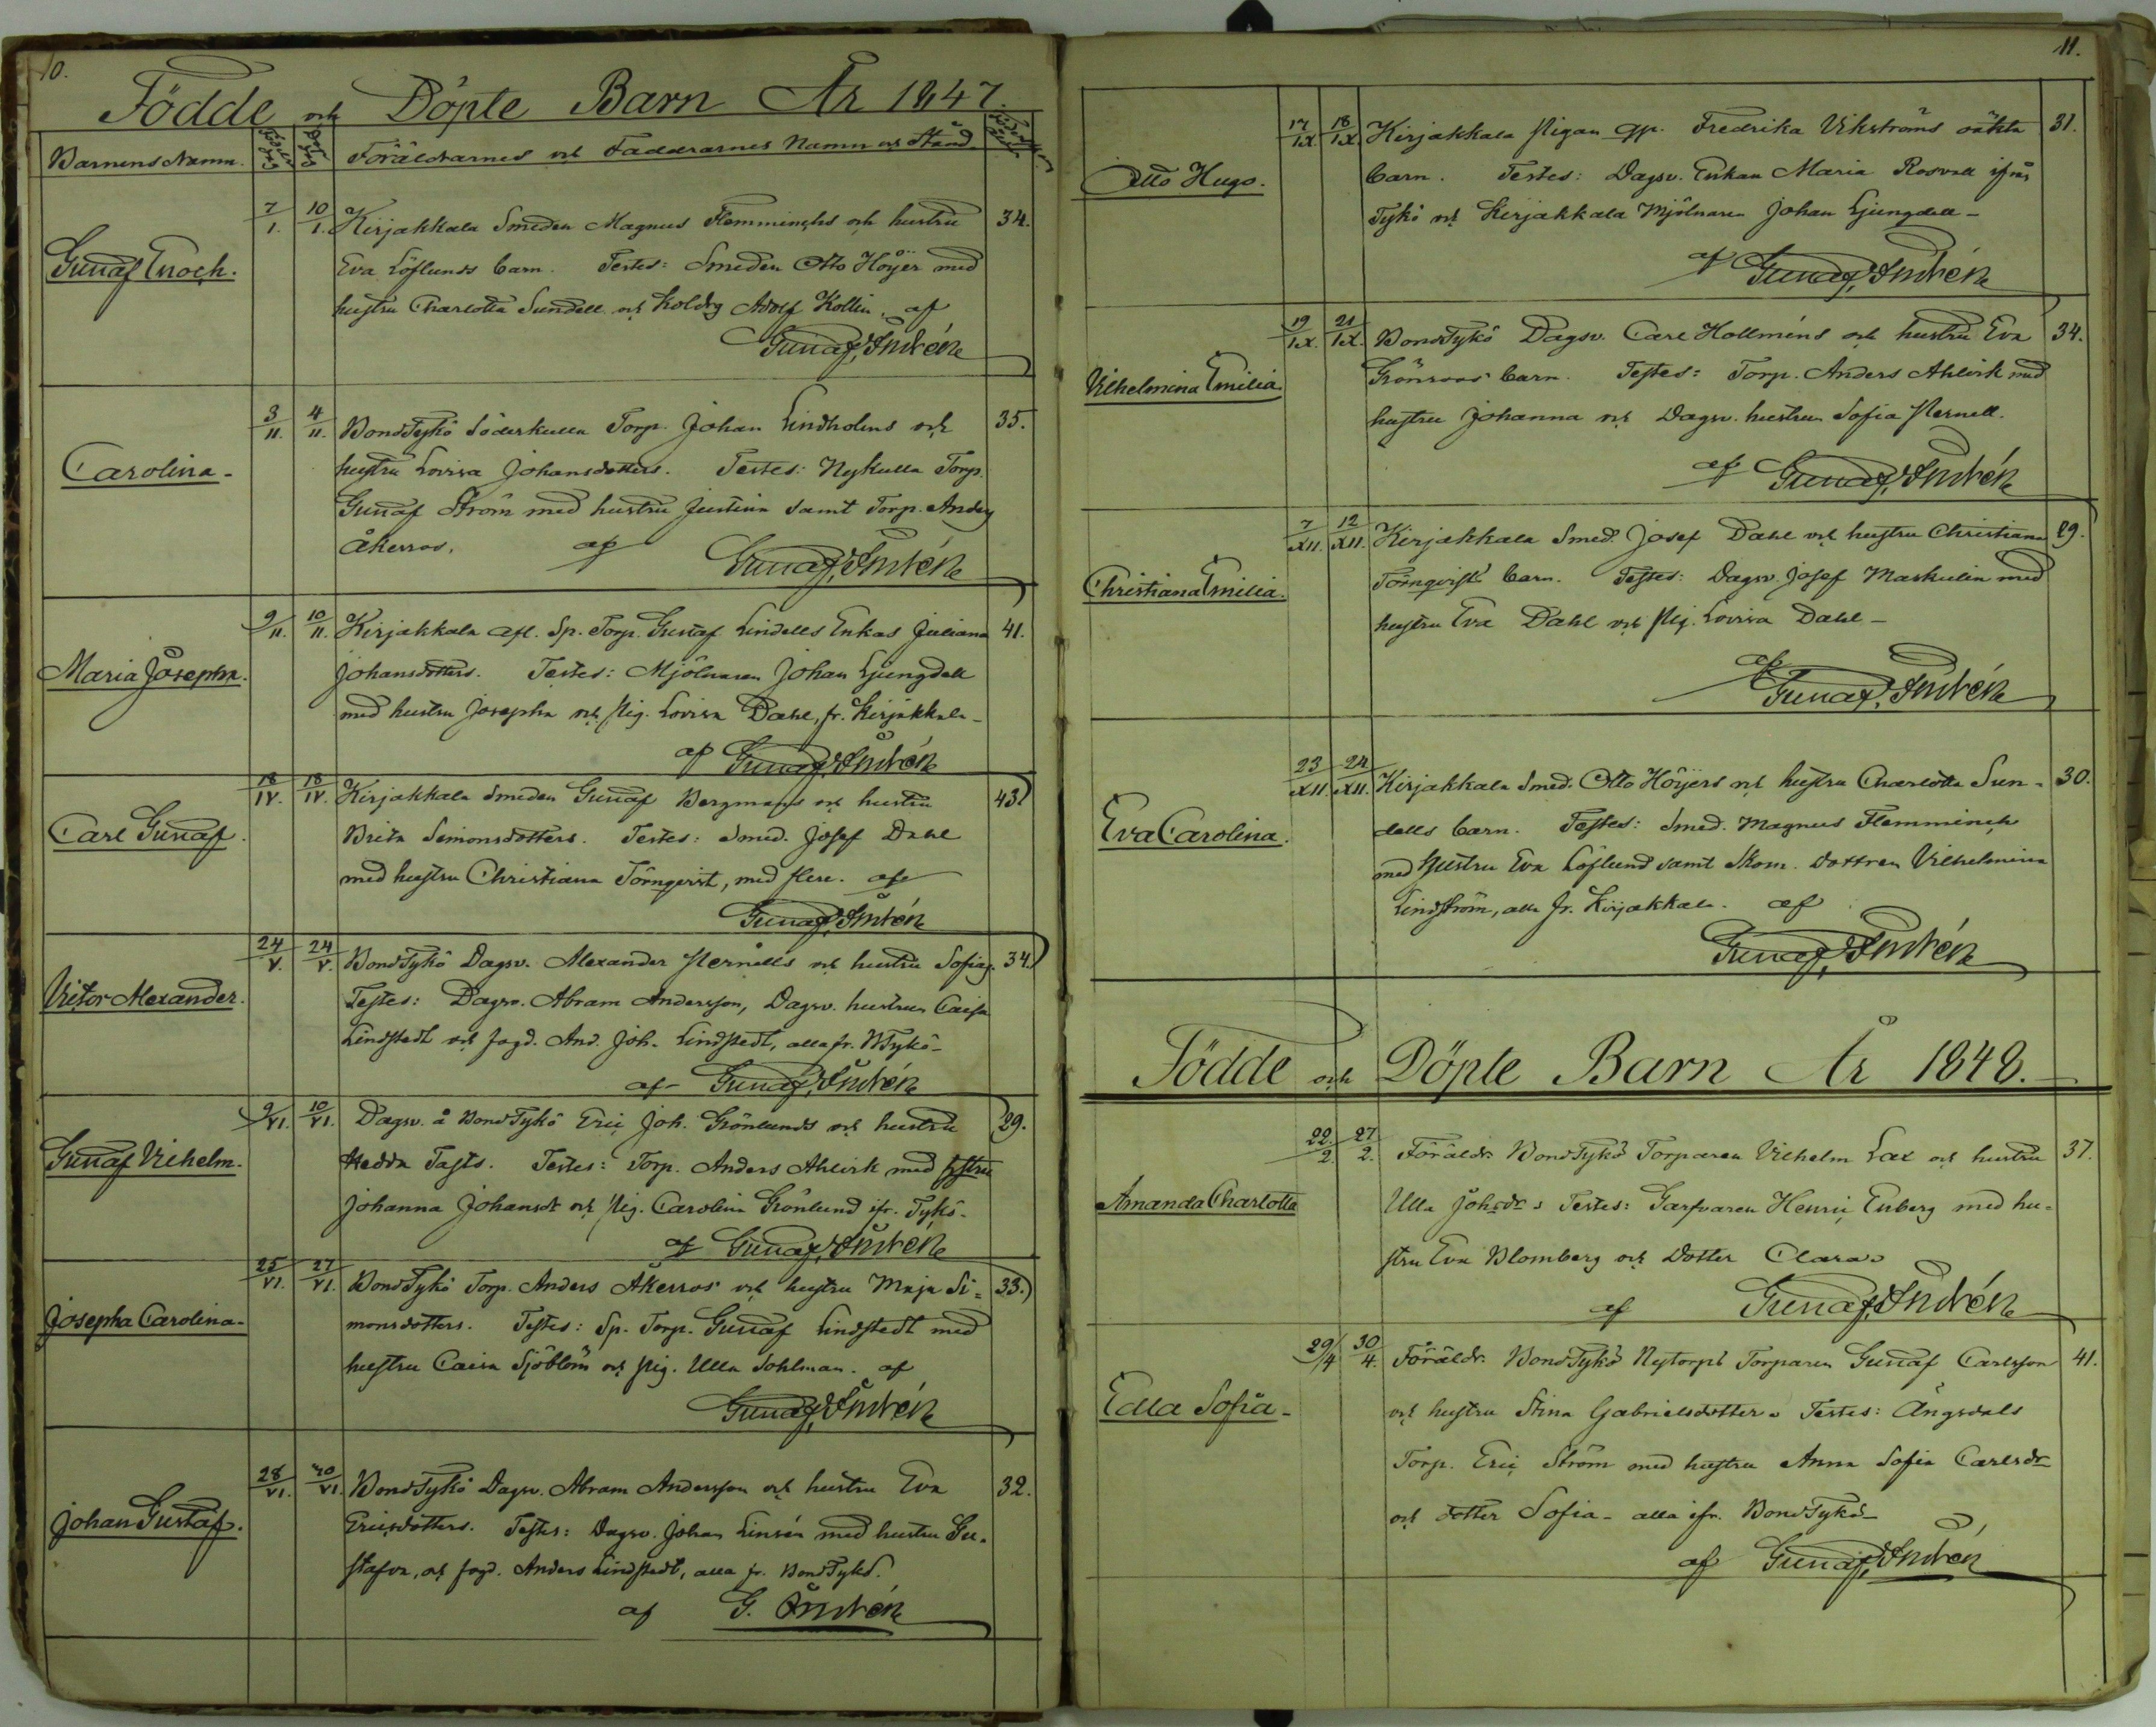 10.
Födde och Döpte Barn År 1847.
Barnens Namn. Föräldrarnes och Faddrarnes Namn och Stånd
Gustaf Enoch. 7/I. 10/I. Kirjakkala Smeden Magnus Flemminchs och hustru 34.
Eva Löflunds barn. Testes: Smeden Otto Höijer med
hustru Charlotta Sundell och Koldrg Adolf Kollin, af
Gustaf Andrén
Carolina 3/II. 4/II. BondTykö Söderkulla Torp. Johan Lindholms och 35.
hustru Lovisa Johansdotters. Testes: Nykulla Torp.
Gustaf Ström med hustru Justina samt Torp. Anders
Åkerros. af Gustaf Andrén
Maria Josepha. 9/II. 10/II. Kirjakkala afl. Sp. Torp. Gustaf Lindells Enkas Juliana 41.
Johansdotters. Testes: Mjölnaren Johan Ljungdell
med hustru Josepha och Pig. Lovisa Dahl, fr. Kirjakkala
af Gustaf Andrén
Carl Gustaf. 18/IV. 18/IV. Kirjakkala Smeden Gustaf Bergmans och hustru 43.
Brita Simonsdotters. Testes: Smed. Josef Dahl
med hustru Christiana Törnqvist, med flere. af
Gustaf Andrén
Victor Alexander. 24/V. 24/V. BondTykö Dagsv. Alexander Pernells och hustru Sofias. 34.
Testes: Dagsv. Abram Andersson, Dagsv. hustrun Caisa
Lindstedt och Jagd. And. Joh. Lindstedt, alla fr. BTykö
af Gustaf Andrén
Gustaf Vilhelm. 9/VI. 10/VI. Dagsv. å BondTykö Eric Joh. Grönlunds och hustru 29.
Hedda Tasts. Testes: Torp. Anders Ahlvik med hustru
Johanna Johansdr och Pig. Carolina Grönlund ifr. Tykö.
af Gustaf Andrén
Josepha Carolina 25/VI. 27/VI. BondTykö Torp. Anders Åkerros och hustru Maja Si- 33.
monsdotters. Testes: Sp. Torp. Gustaf Lindstedt med
hustru Caisa Sjöblom och Pig. Ulla Sohlman. af
Gustaf Andrén
Johan Gustaf. 28/VI. 30/VI. BondTykö Dagsv. Abram Andersson och hustru Eva 32.
Ericsdotters. Testes: Dagsv. Johan Linsén med hustru Gu-
stafva, och Jagd. Anders Lindstedt, alla fr. BondTykö.
af G. Andrén
11.
Otto Hugo. 17/IX. 18/IX. Kirjakkala Pigan Fredrika Vikströms oäkta 31.
barn. Testes: Dagsv. Enkan Maria Rosvall ifrån
Tykö och Kirjakkala Mjölnaren Johan Ljungdell
af Gustaf Andrén
Vilhelmina Emilia. 19/IX. 21/IX. BondTykö Dagsv. Carl Hollméns och hustru Eva 34.
Grönroos barn. Testes: Torp. Anders Ahlvik med
hustru Johanna och Dagsv. hustrun Sofia Pernell.
af Gustaf Andrén
Christiana Emilia. 7/XII. 12/XII. Kirjakkala Smed. Josef Dahl och hustru Christiana 29.
Törnqvists barn. Testes: Dagsv. Josef Maskulin med
hustru Eva Dahl och Pig. Lovisa Dahl
af
Gustaf Andrén
Eva Carolina. 23/XII. 24/XII. Kirjakkala Smed. Otto Höijers och hustru Charlotta Sun- 30.
dells barn. Testes: Smed. Magnus Flemminch
med hustru Eva Löflund samt Skom. dottren Vilhelmina
Lindström, alla fr. Kirjakkala. af
Gustaf Andrén
Födde och Döpte Barn År 1848.
Amanda Charlotta 22/2. 27/2. Föräldr. BondTykö Torparen Vilhelm Lax och hustru 37.
Ulla Johsdr. Testes: Garfvaren Henric Enberg med hu-
stru Eva Blomberg och Dotter Clara.
af Gustaf Andrén
Edla Sofia 29/4 30/4. Föräldr. BondTykö Nytorps Torparen Gustaf Carlsson 41.
och hustru Stina Gabrielsdotter. Testes: Ängsdals
Torp. Eric Ström med hustru Anna Sofia Carlsdr
och dotter Sofia - alla ifr. BondTykö
af Gustaf Andrén